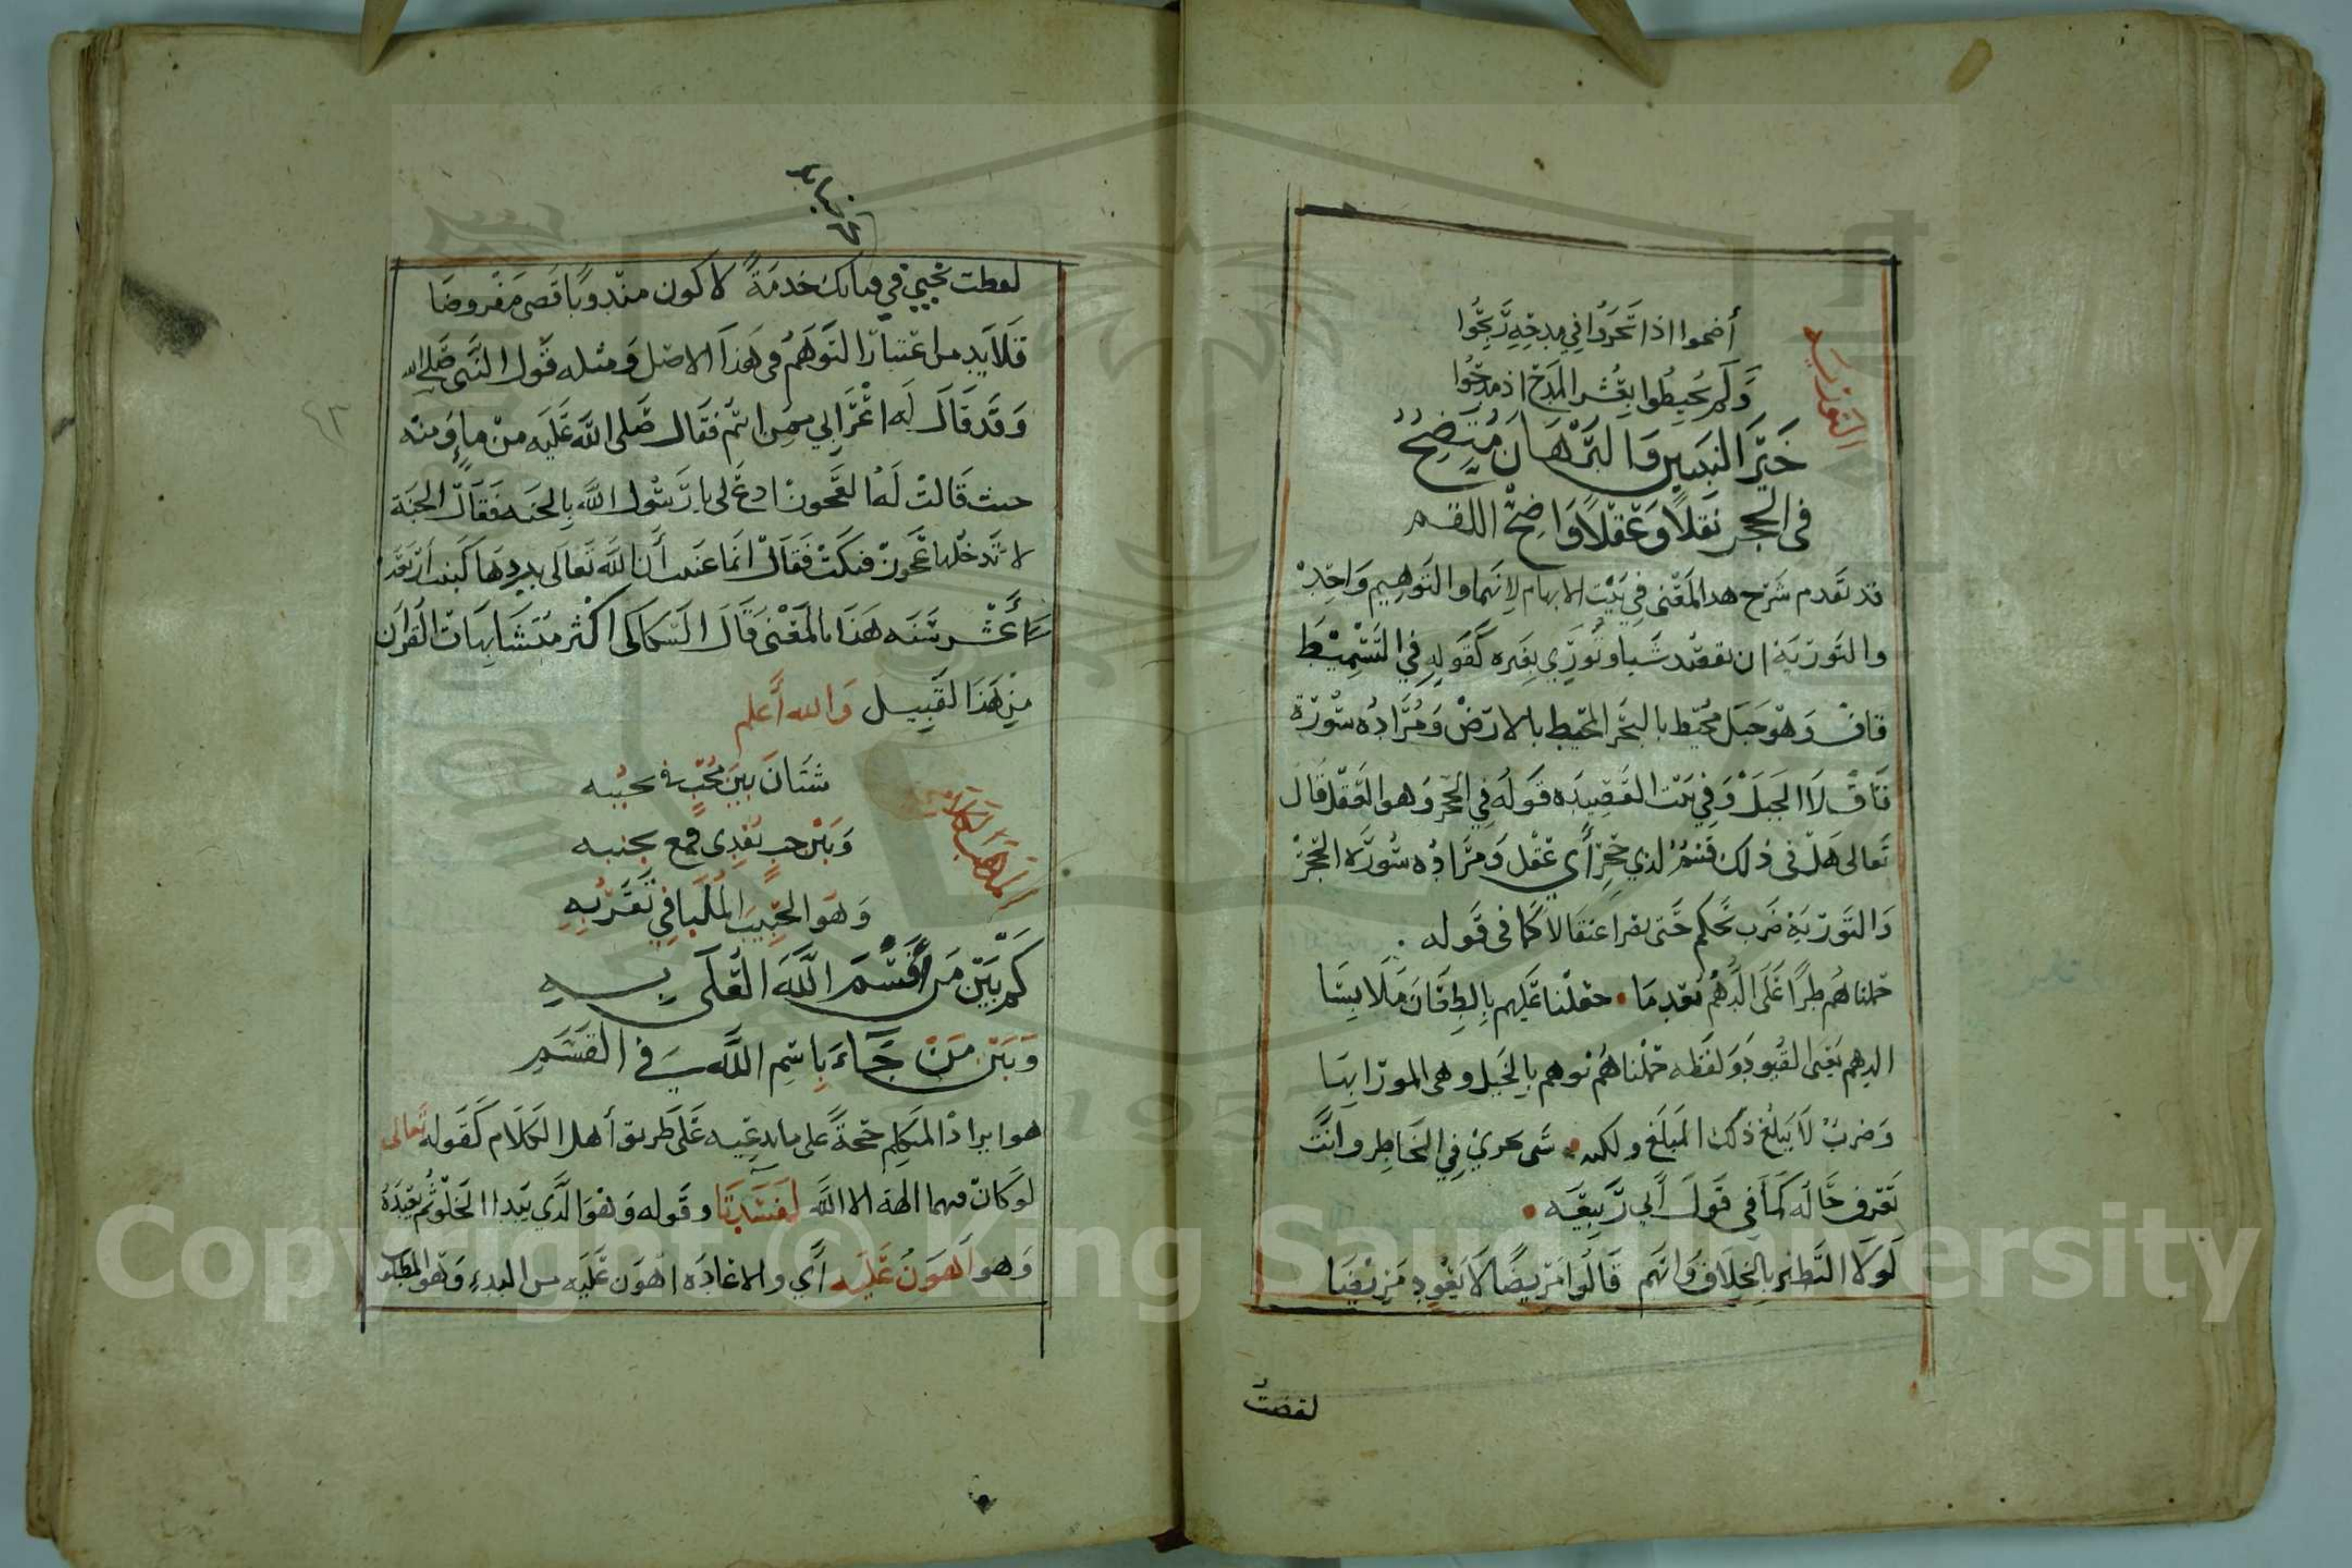 التورية
أضحوا اذا تحروا في مدحه ربحوا
ولم يحيطوا بعُشر المدح اذ مدحُوا
خَيْرَ النبيين وَالبُرْهَانُ مُتَّضِحٌ
في الحجر نَقلاً وَعَقْلاً وَاضِحُ اللقم
قد تقدم شرح هدا المَعْنى في بَيْت الابهام لانهما والتوهيم واحِدْ
والتورية ان تقصد شيا وتورّي بغيره كقوله في التسميط
قاف وهو جبل محيط بالبحر المحيط بالارض ومُراده سُورة
قاف لا الجبل وفي بيت القصيده قوله في الحجر وهو العقل قال
تعالى هل في ذلك قسم لذي حجر أي عقل ومراده سُورة الحجر
والتورية ضرب محكم حتى اعتقالا كما في قوله
حملناهم طرًا على الدهم بعدما • عليهم بالطعان ملابسَا
الدهم يعني القيود ولفظه حملناهم توهم بالخيل وهى المورا بها
وضربٌ لا يبلغ ذلك المبلغ ولكن • شى يجري في الخاطر وانت
تعرف حَاله كما في قول أبي ربيعه •
لولا التطير بالخلاف وانهم قالوا مَريضًا لا يعُود مَريضَا
لقضيتُ
لقضيت نحبي في خدمَةً لاكون مندوبًا قضى مَفْروضَا
فلا بد من اعتبار التوهم في هذا الاصل ومثله قول النبى صَلى الله
وقد قال له اعْرَابي ممن انتم فقال صَلى الله عَليه من ماءٍ ومنه
حيث قالت له العجوز ادع لى يا رسُول الله بالجنه فقال الجنة
لا تدخلها عجوز فبكت فقال انما عنيت أن الله تعالى يردها كبنت أربعة
عَشر سَنه هذا بالمَعْنى قال السكاكى اكثر متشابهات القرآن
مِن هَذا القبيل وَالله أعلم
المذهب الكلامي
شتَانَ بينَ مُحِبٍّ في محببه
وَبَيْن حبٍ يُفْدِى بجنبه
وَهو الحَبيب المُلبا في تَقَرُّبِهِ
كَمْ بَيْنَ مَن أَقسَمَ اللَّهَ العَلَى بِهِ
وَبَيْن مَنْ جَاءَ بِاسْمِ اللَّهِ في القسَمِ
هو ايراد المتكلم حجةً على ما يدعيه عَلى طريق أهل الكلام كقوله تعالى
لو كان فيهما الهة الا الله لَفسَدَتا وقوله وهو الذي يبدا الخلق ثم يعيده
وهو أهونُ عَليه أي والاعادة اهون عَليه من البدء وهو المطلوب